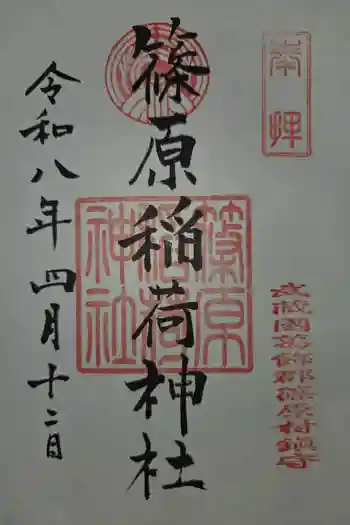 奉拝
武蔵國葛飾郡篠原村鎮守
篠原稲荷神社
篠原稲荷神社
令和八年四月十二日